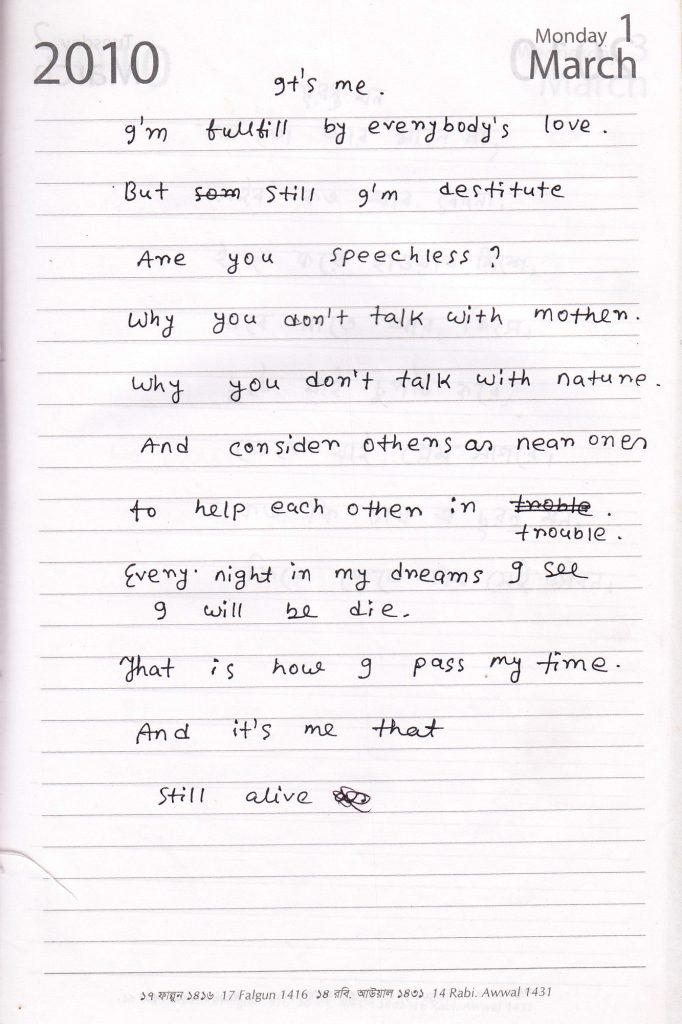 2010
Monday 1
March
It's me.
I'm fullfill by everybody's love.
But som still I'm destitute
Are you speechless?
Why you don't talk with mother.
Why you don't talk with nature.
And consider others as near ones
to help each other in troble.
trouble.
Every night in my dreams I see
I will be die.
That is how I pass my time.
And it's me that
still alive
১৭ ফাল্গুন ১৪১৬ 17 Falgun 1416 ১৪ রবি. আউয়াল ১৪৩১ 14 Rabi. Awwal 1431